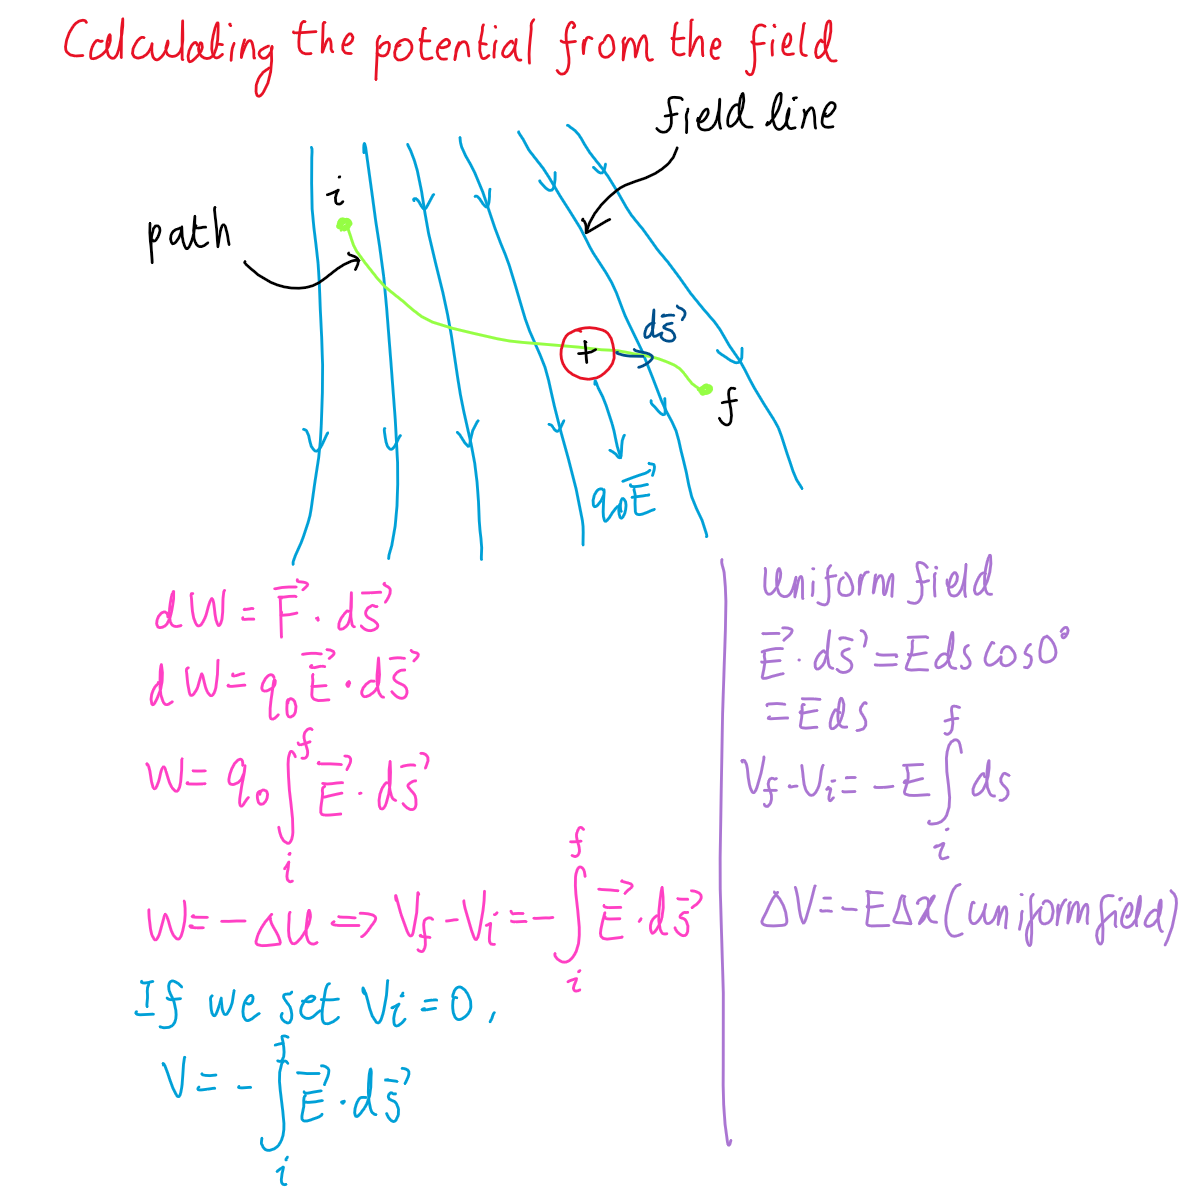 Calculating the potential from the field
field line
i
path
ds⃗
+
f
q₀E⃗
dW = F⃗ · ds⃗
dW = q₀ E⃗ · ds⃗
W = q₀ ∫ᵢᶠ E⃗ · ds⃗
W = −ΔU ⇒ Vf − Vi = −∫ᵢᶠ E⃗ · ds⃗
If we set Vi = 0,
V = −∫ᵢᶠ E⃗ · ds⃗
Uniform field
E⃗ · ds⃗ = E ds cos0°
= E ds
Vf − Vi = −E ∫ᵢᶠ ds
ΔV = −EΔx (uniform field)